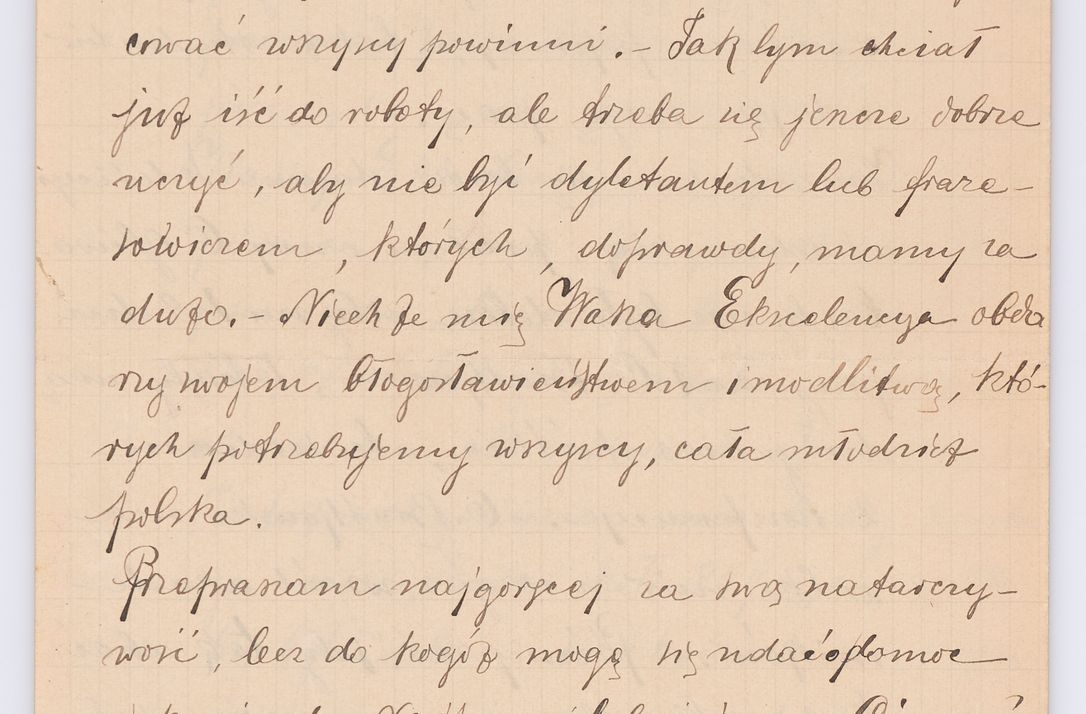 cować wszyscy powinni. – Jakbym chciał
już iść do roboty, ale trzeba się jeszcze dobrze
uczyć, aby nie być dyletantem lub fraze-
sowiczem, których, doprawdy, mamy za
dużo. – Niechże mię Wasza Ekscelencya obda
rzy swojem błogosławieństwem i modlitwą, któ-
rych potrzebujemy wszyscy, cała młodzież
polska.
Przepraszam najgoręcej za swą natarczy-
wość, lecz do kogóż mogę się udać o pomoc